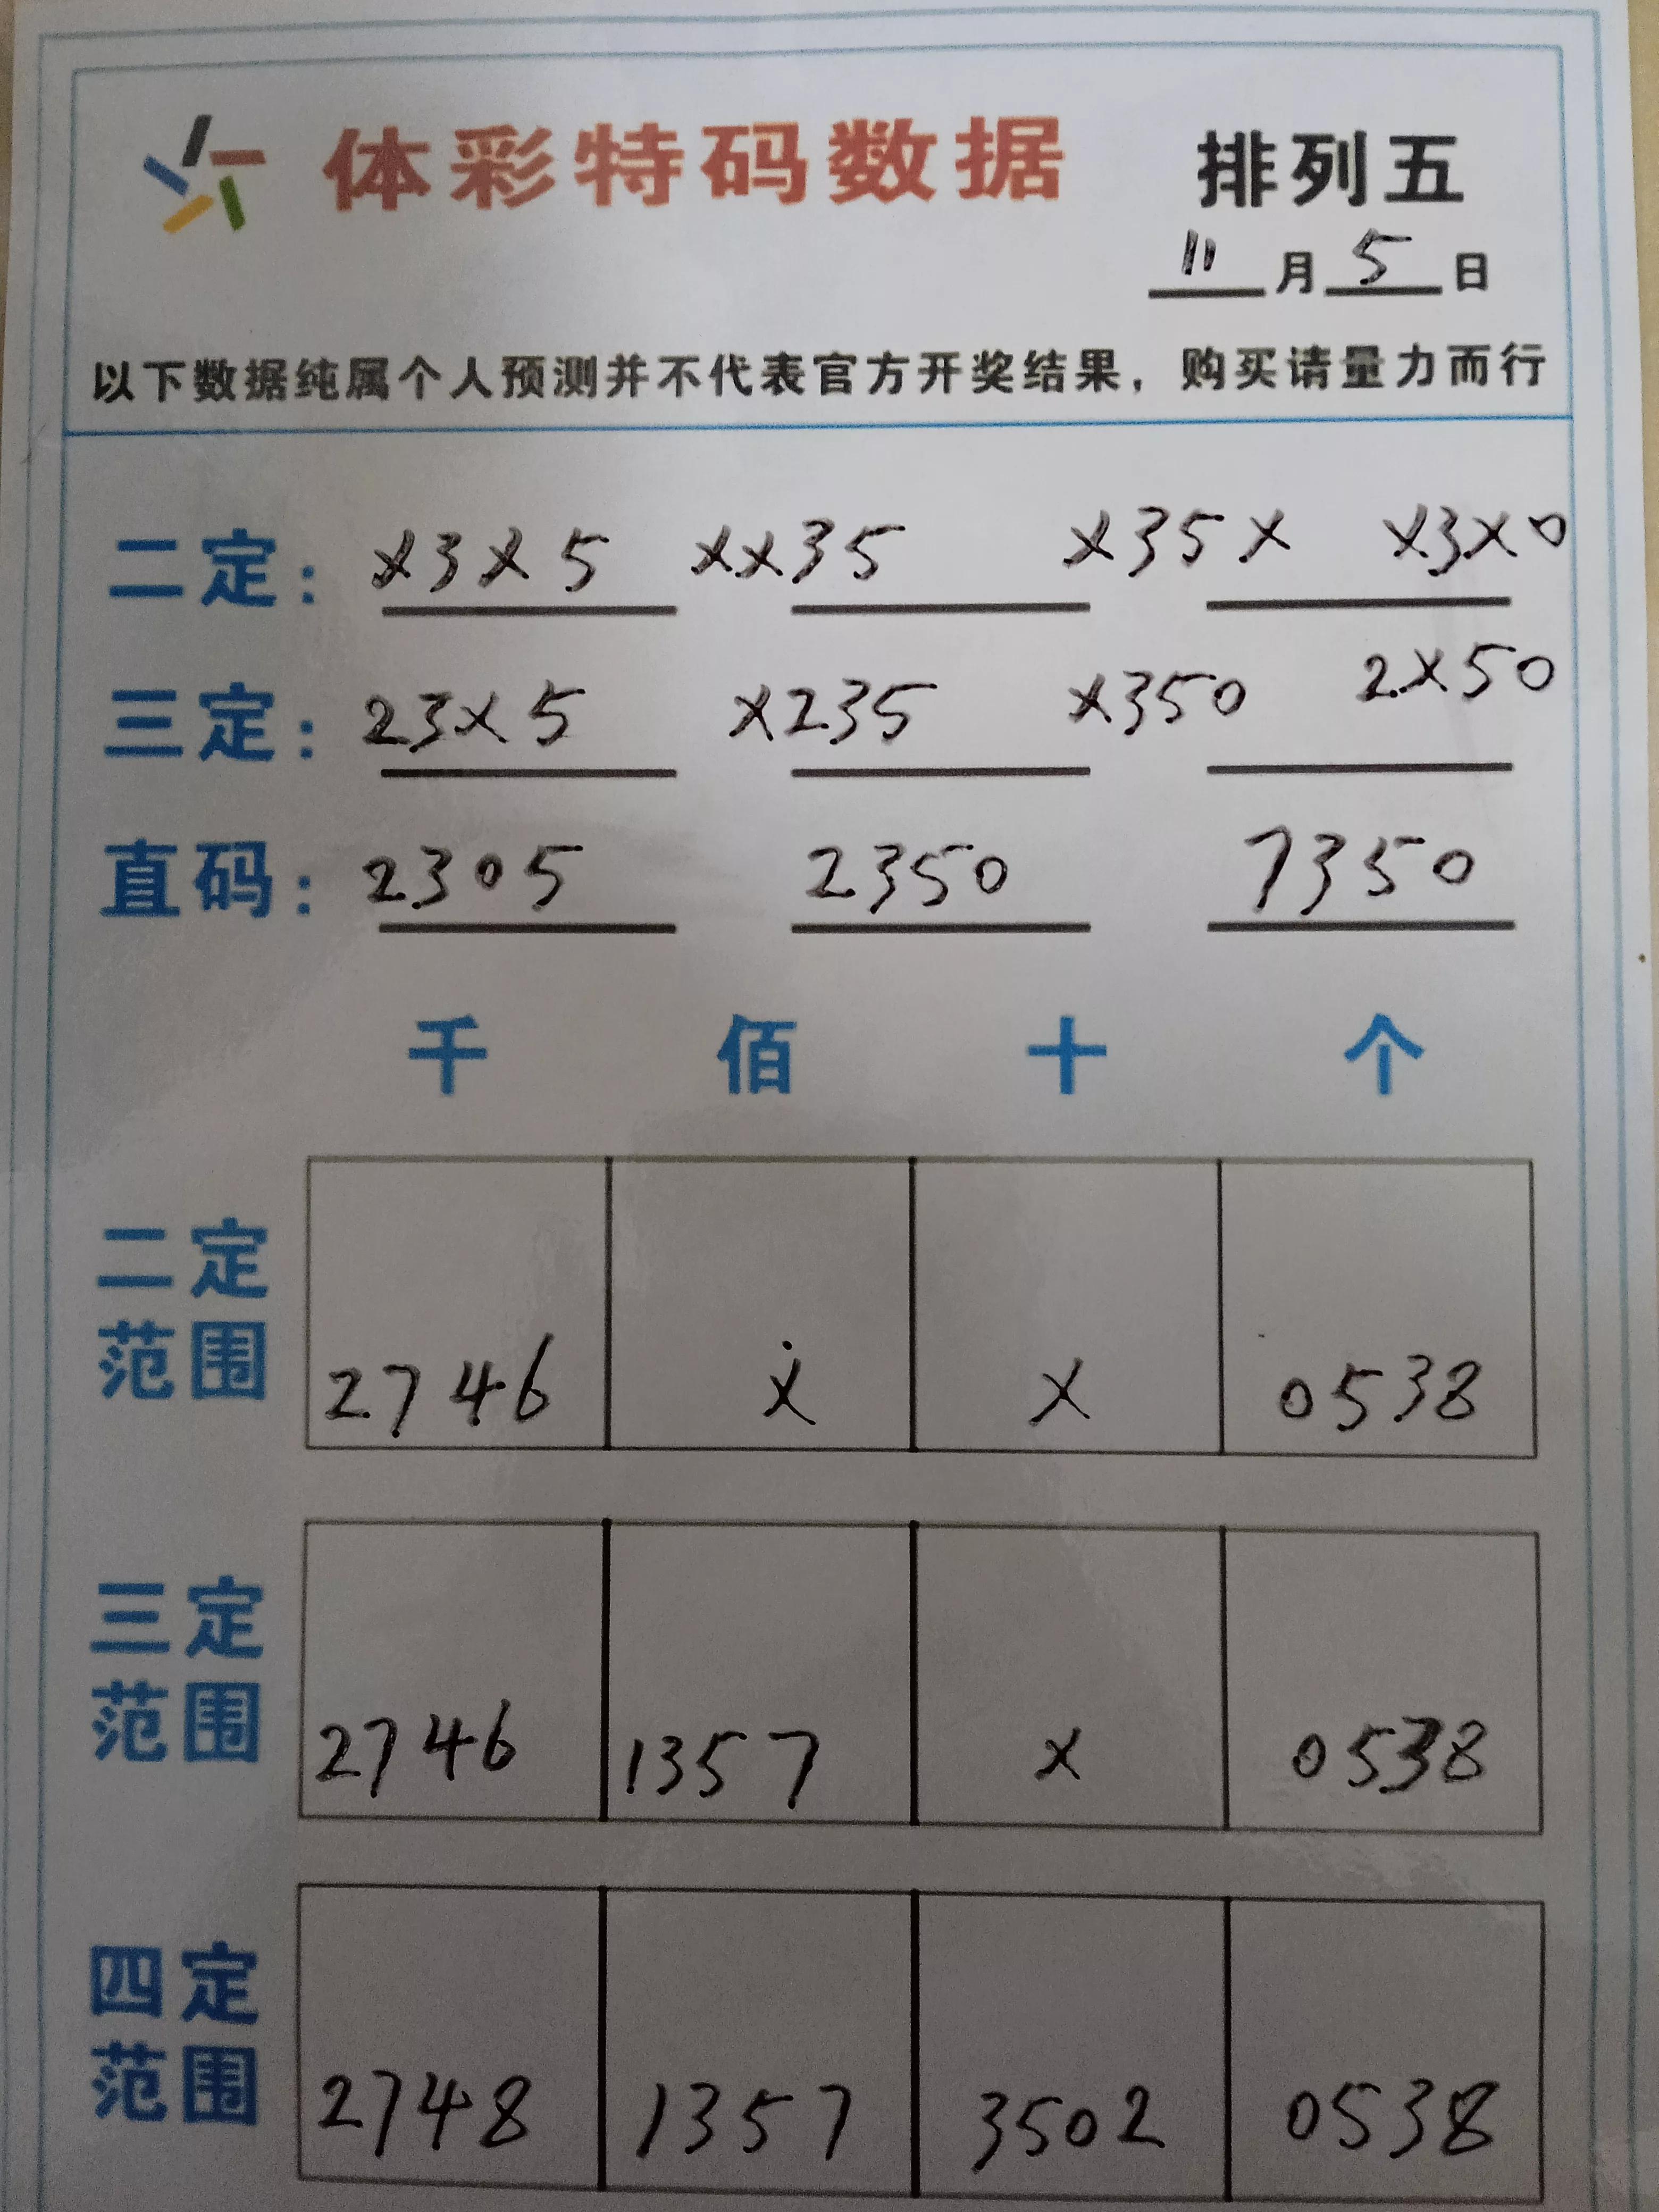 体彩特码数据 排列五
11月5日
以下数据纯属个人预测并不代表官方开奖结果，购买请量力而行
二定： x3x5 xx35 x35x x3x0
三定： 23x5 x235 x350 2x50
直码： 2305 2350 7350
千 佰 十 个
二定
范围
2746 x x 0538
三定
范围
2746 1357 x 0538
四定
范围
2748 1357 3502 0538